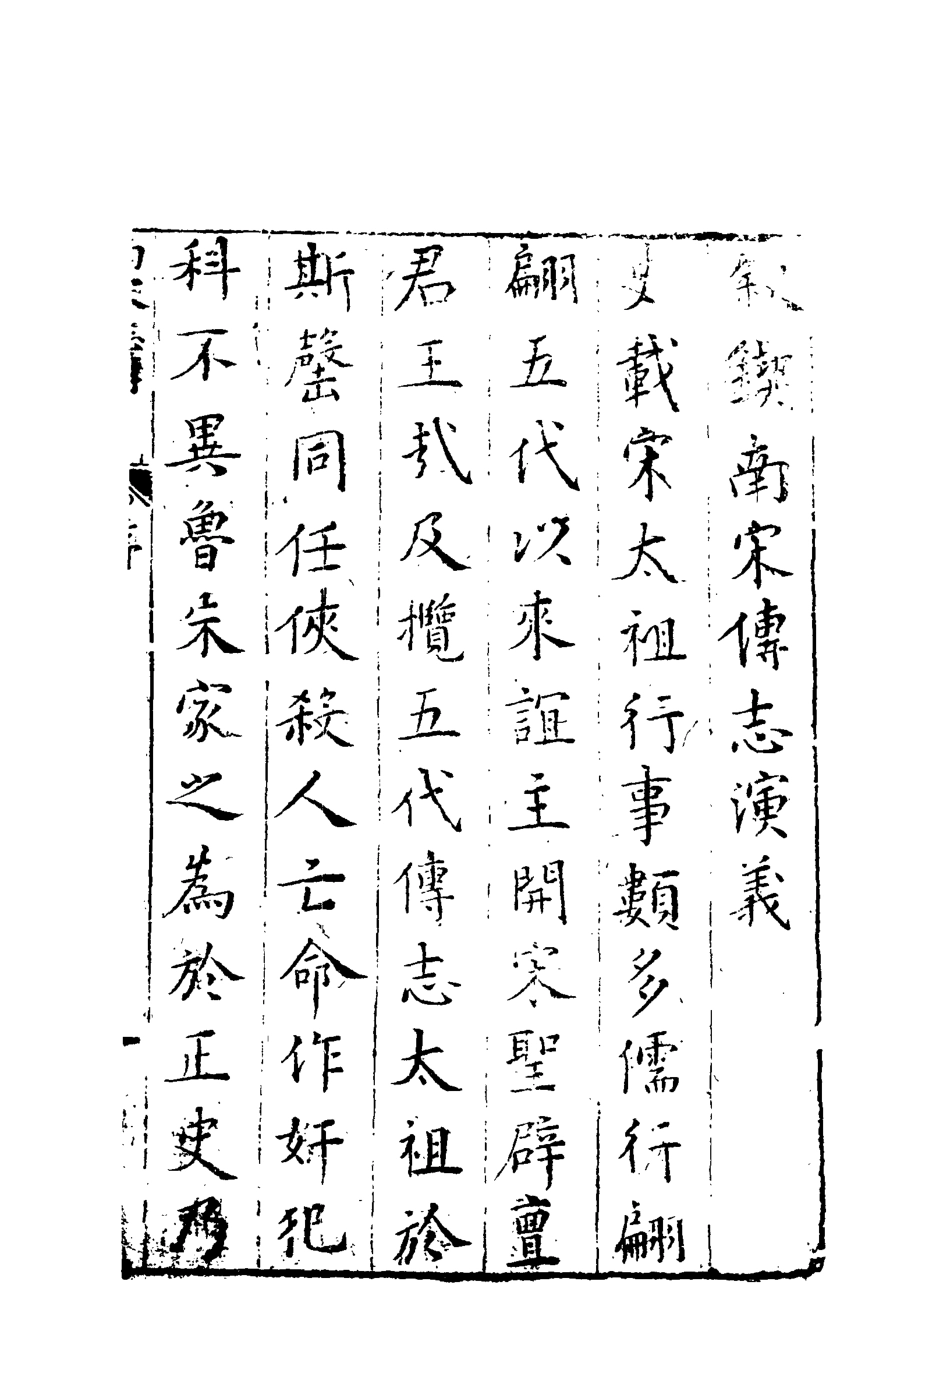 叙鍥南宋傳志演義
史載宋太祖行事類多儒行翩
翩五代以來誼主開寒聖辟亶
君王哉及攬五代傳志太祖於
斯罄同任俠殺人亡命作奸犯
科不異魯朱家之為於正史乃